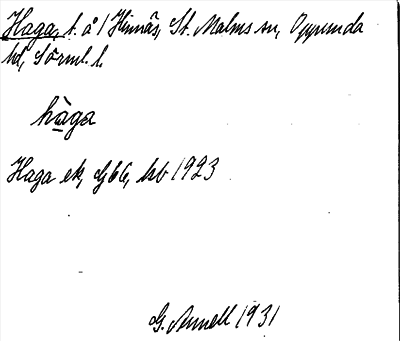 Haga, t. å 1 Hinnäs, St. Malms sn, Oppunda
hd, Sörml. l.
hàga
Haga ek, Gj 66, hsb 1923
G. Annell 1931